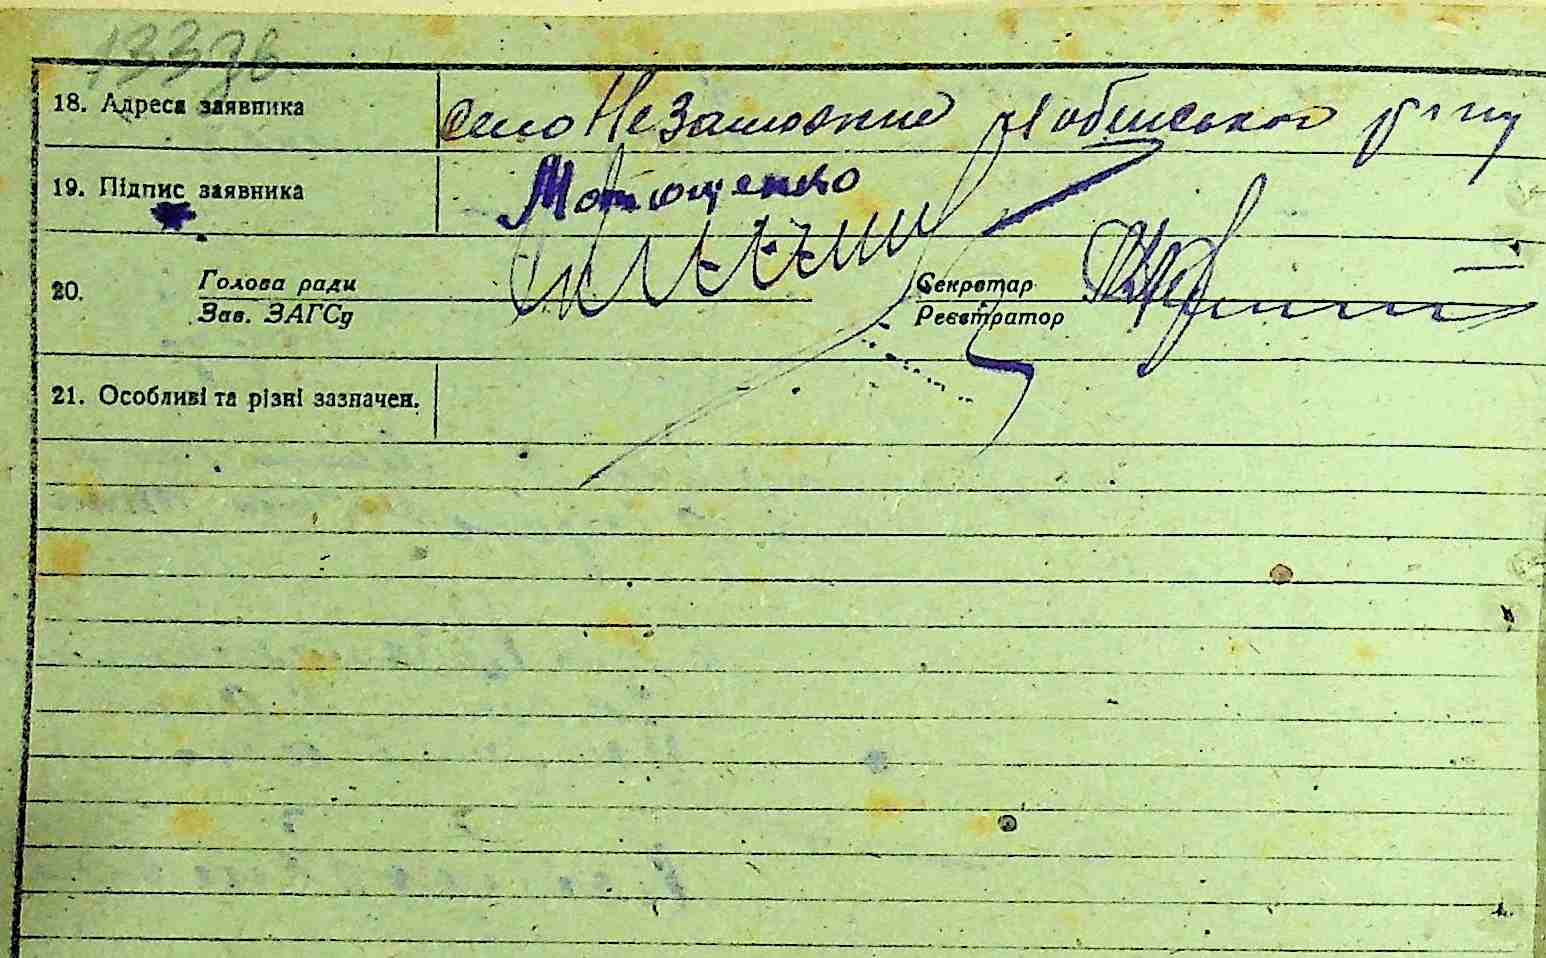 133 зв.
18. Адреса заявника село Незаможне р-ну
19. Підпис заявника Матющенко
20. Голова ради Секретар
Зав. ЗАГСу Реєстратор
21. Особливі та різні зазначен.